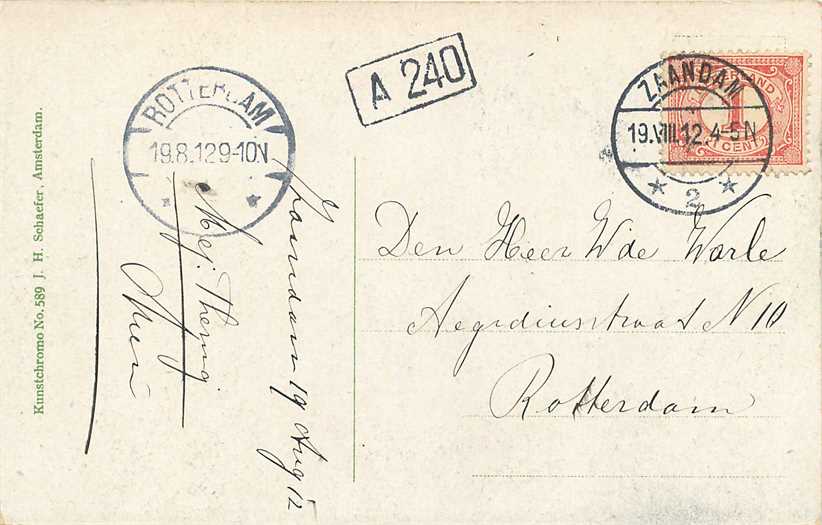 Kunstchromo No. 589 J. H. Schaefer, Amsterdam.
ROTTERDAM
19.8.12 9-10N
A 240
ZAANDAM
19.VIII.12.4-5N
2
1
CENT
Zaandam 19 Aug 12
Mej. 
Den Heer W de Warle
Aegidiusstraat N 10
Rotterdam